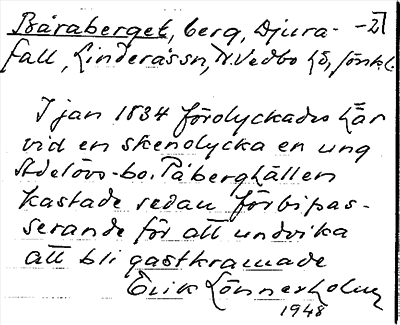 Båraberget, berg, Djura- -27
fall, Linderåssn, N. Vedbo hd, Jönk.l.
I jan 1834 förolyckades här
vid en skenolycka en ung
Adelövs-bo. På berghällen
kastade sedan förbipas-
serande för att undvika
att bli gastkramade
Erik Lönnerholm
1948